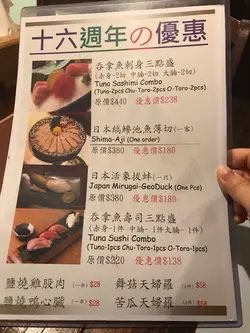 十六週年の優惠
吞拿魚刺身三點盛
(赤身-2切 中腩-2切 大腩-2切)
Tuna Sashimi Combo
(Tuna-2pcs Chu-Toro-2pcs O-Toro-2pcs)
原價$440 優惠價$238
日本縞鰺池魚薄切(一客)
Shima-Aji (One order)
原價$380 優惠價$180
日本活象拔蚌(一只)
Japan Mirugai-GeoDuck (One Pcs)
原價$360 優惠價$180
吞拿魚壽司三點盛
(赤身-1件 中腩-1件 大腩-1件)
Tuna Sushi Combo
(Tuna-1pcs Chu-Toro-1pcs O-Toro-1pcs)
原價$220 優惠價$138
鹽燒雞股肉 (一串) $28 舞菇天婦羅 $58
鹽燒鴨心臟 (一串) $28 苦瓜天婦羅 $58